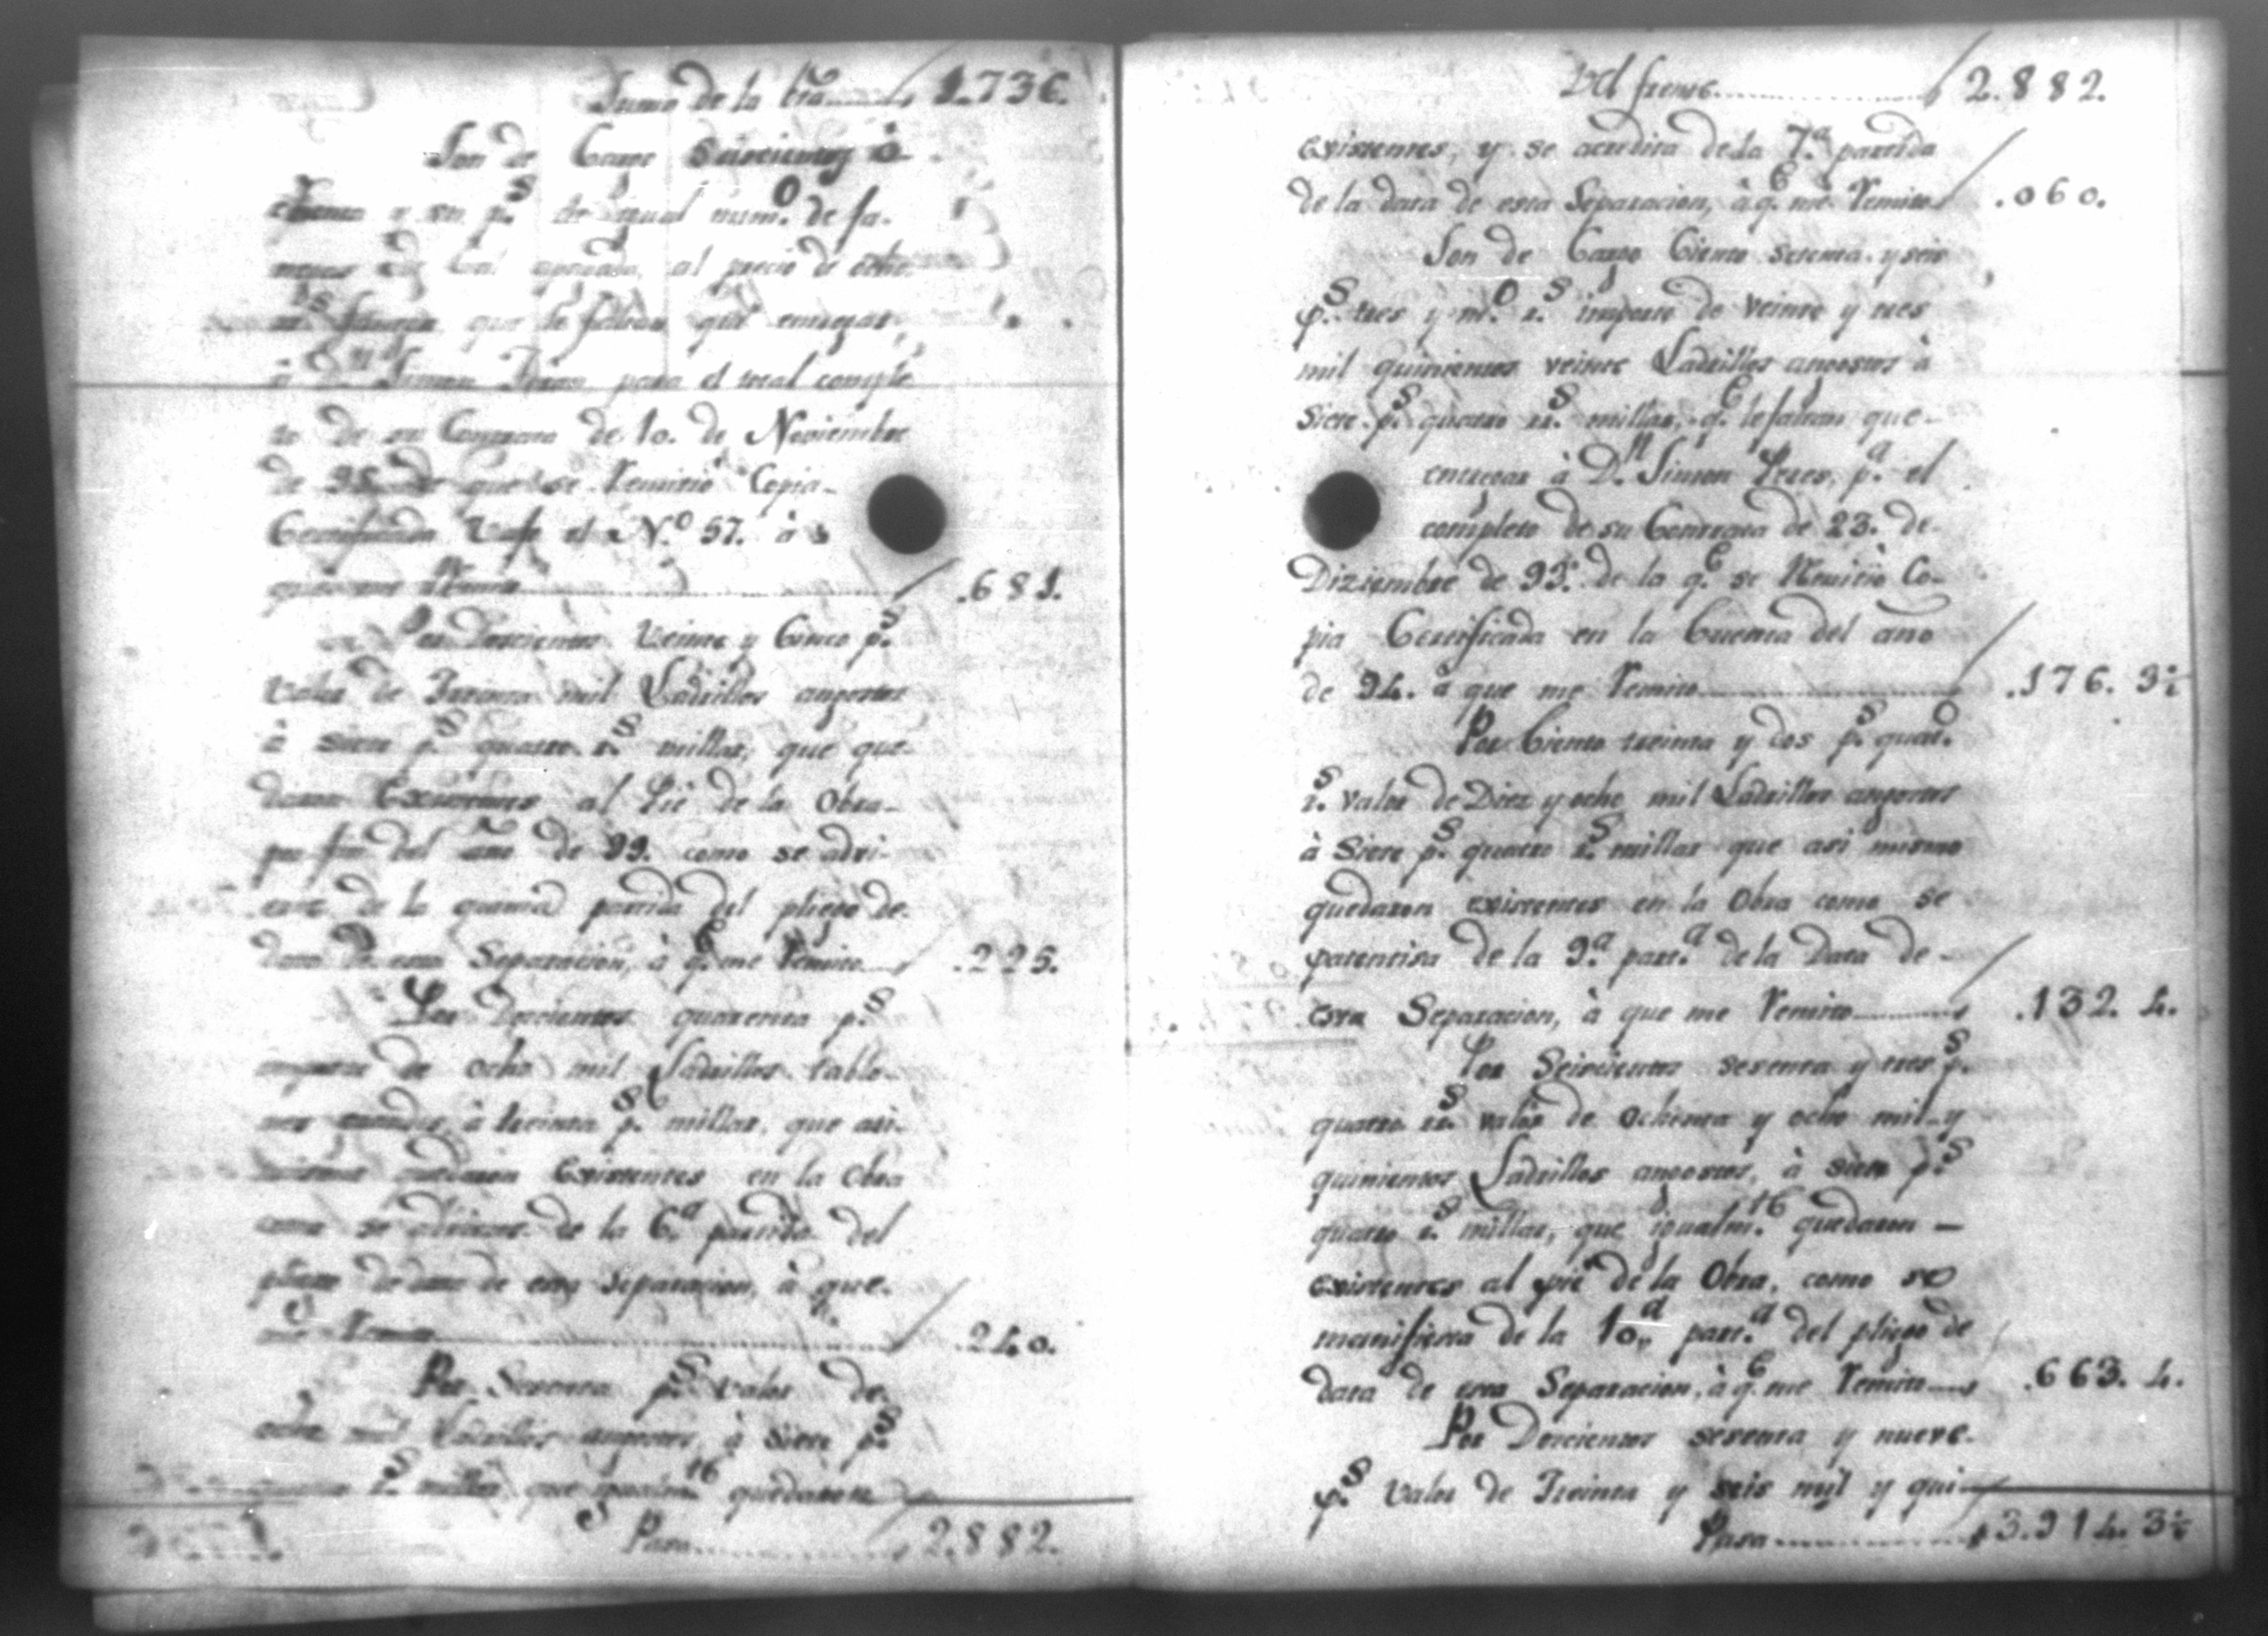 Suma de la bta 1.736.
Son de Cargo Seiscientos o-
chenta y un p.s de igual num.o de fa-
negas de Cal apagada, al precio de ocho
r.s fanega que le faltan que entregar,
à D.n Simon Perez para el total comple
to de su Contrata de 10. de Noviembre
de 95. de que se Remitió Copia-
Certificada bajo el N.o 57. à
que me Remito .681.
Por Doscientos veinte y Cinco p.s
valor de Treinta mil Ladrillos angostos
à siete p.s quatro r.s millar, que que
daron Existentes al Pie de la Obra-
por fin del año de 99. como se advi-
erte de la quinta partida del pliego de
data de esta Separacion, à q.e me Remito .225.
Por Doscientos quarenta p.s
importe de ocho mil Ladrillos tablo-
nes à treinta p.s millar, que asi-
mismo quedaron Existentes en la Obra
como se advierte de la 6.a partida del
pliego de data de esta Separacion, à que
me Remito .240.
Por Sesenta p.s valor de
ocho mil Ladrillos angostos, à siete p.s
quatro r.s millar, que igualm.te quedaron
Pasa 2.882.
Del frente 2.882.
existentes, y se acredita de la 7.a partida
de la data de esta Separacion, à q.e me Remito .060.
Son de Cargo Ciento setenta y seis
p.s tres y m.o r.s importe de veinte y tres
mil quinientos veinte Ladrillos angostos à
siete p.s quatro r.s millar, q.e le faltan que-
entregar à D.n Simon Perez, p.a el
completo de su Contrata de 23. de-
Diziembre de 93. de la q.e se Remitio Co-
pia Certificada en la Cuenta del año
de 94. à que me Remito .176. 3½
Por Ciento treinta y dos p.s quat.o
r.s valor de Diez y ocho mil Ladrillos angostos
à siete p.s quatro r.s millar que asi mismo
quedaron existentes en la Obra como se
patentisa de la 9.a part.a de la Data de-
esta Separacion, à que me Remito .132. 4.
Por Seiscientos sesenta y tres p.s
quatro r.s valor de ochenta y ocho mil y
quinientos Ladrillos angostos, à siete p.s
quatro r.s millar, que igualm.te quedaron -
existentes al pie de la Obra, como se
manifiesta de la 10.a part.a del pliego de
data de esta Separacion, à q.e me Remito .663. 4.
Por Doscientos setenta y nueve
p.s valor de Treinta y seis mil y qui-
Pasa 3.914. 3½